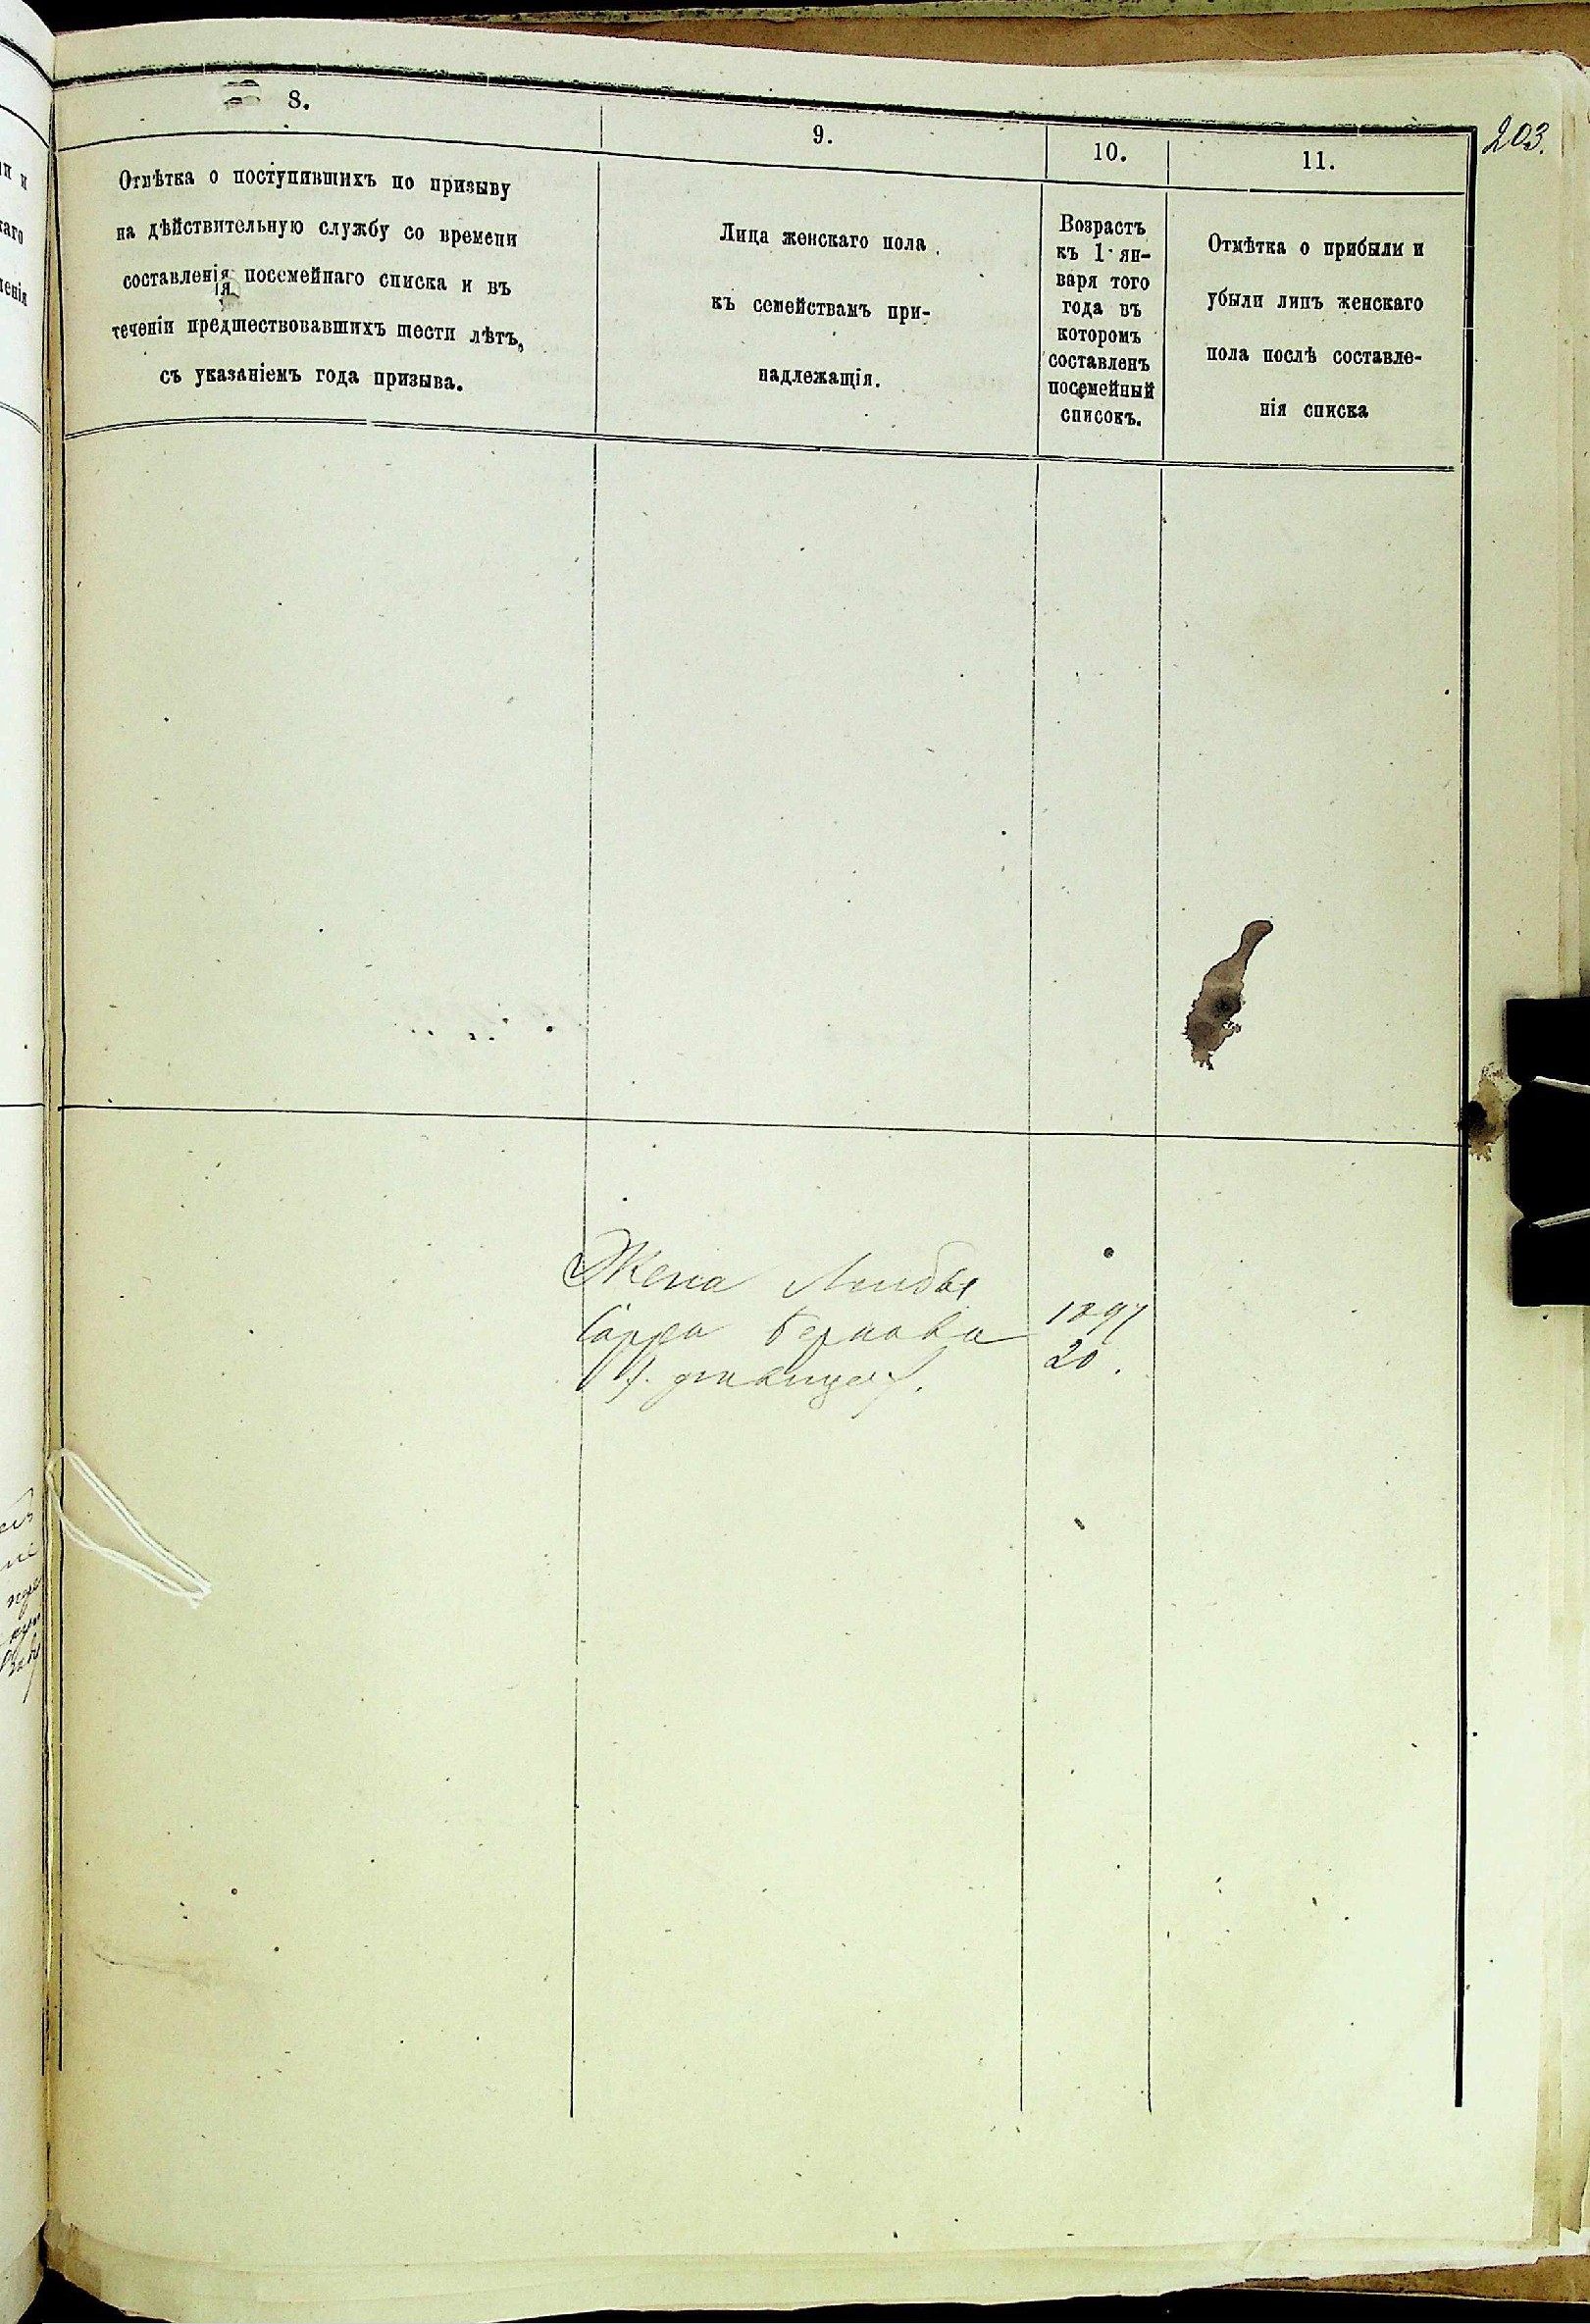 203.
8.
Отмѣтка о поступившихъ по призыву
на дѣйствительную службу со времени
составленія посемейнаго списка и въ
теченіи предшествовавшихъ шести лѣтъ,
съ указаніемъ года призыва.
9.
Лица женскаго пола
къ семействамъ при-
надлежащія.
10.
Возрастъ
къ 1 ян-
варя того
года въ
которомъ
составленъ
посемейный
списокъ.
11.
Отмѣтка о прибыли и
убыли лицъ женскаго
пола послѣ составле-
нія списка
Жена Лейбы
Сарра Беркова
1897
20.